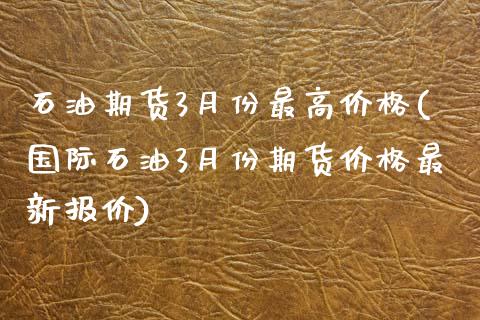 石油期货3月份最高价格(
国际石油3月份期货价格最
新报价)